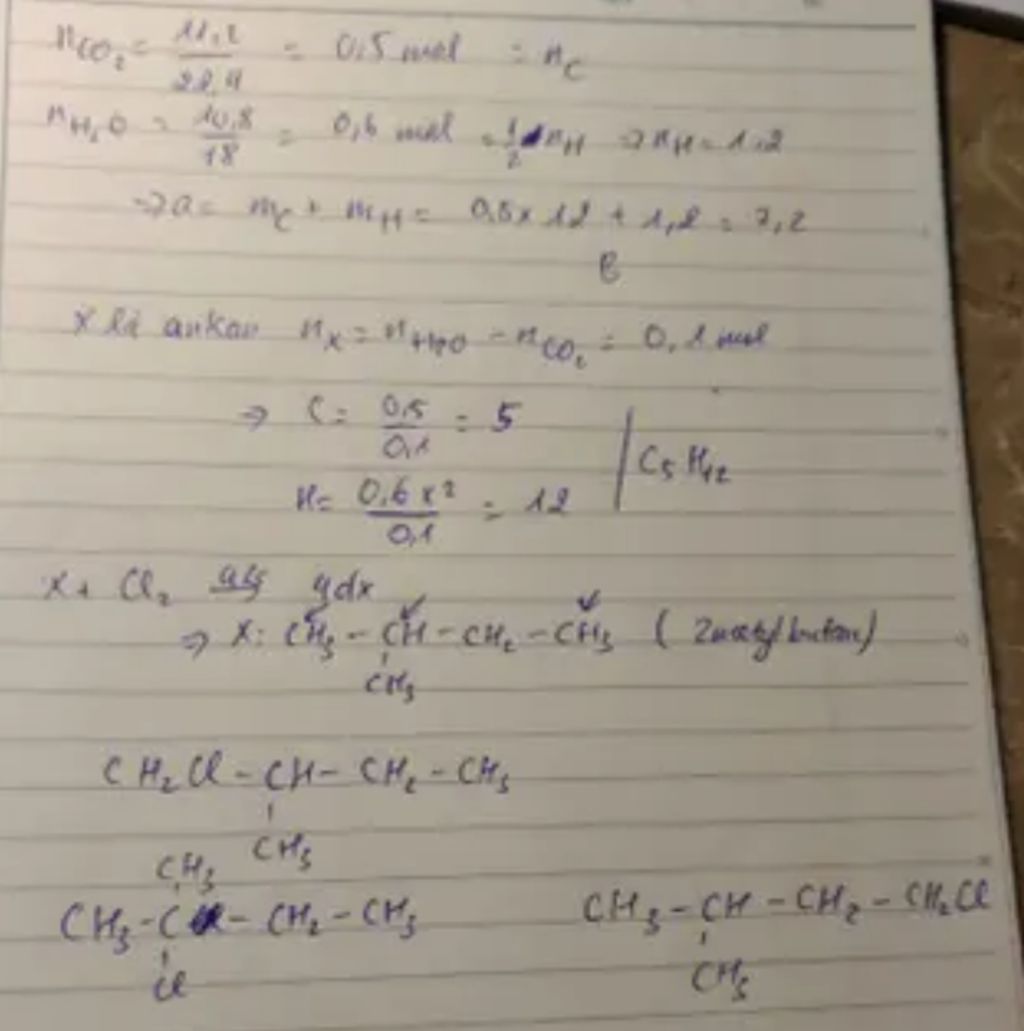 nCO₂ = 11,2/22,4 = 0,5 mol = nC
nH₂O = 10,8/18 = 0,6 mol = 1/2 nH => nH = 1,2
=> a = mC + mH = 0,5 x 12 + 1,2 = 7,2
B
X là ankan nX = nH₂O - nCO₂ = 0,1 mol
=> C = 0,5/0,1 = 5
H = 0,6 x 2/0,1 = 12 | C₅H₁₂
X + Cl₂
=> X: CH₃ - CH - CH₂ - CH₃ ( 2metylbutan)
CH₃
CH₂Cl - CH - CH₂ - CH₃
CH₃
CH₃
CH₃ - C - CH₂ - CH₃
Cl
CH₃ - CH - CH₂ - CH₂Cl
CH₃